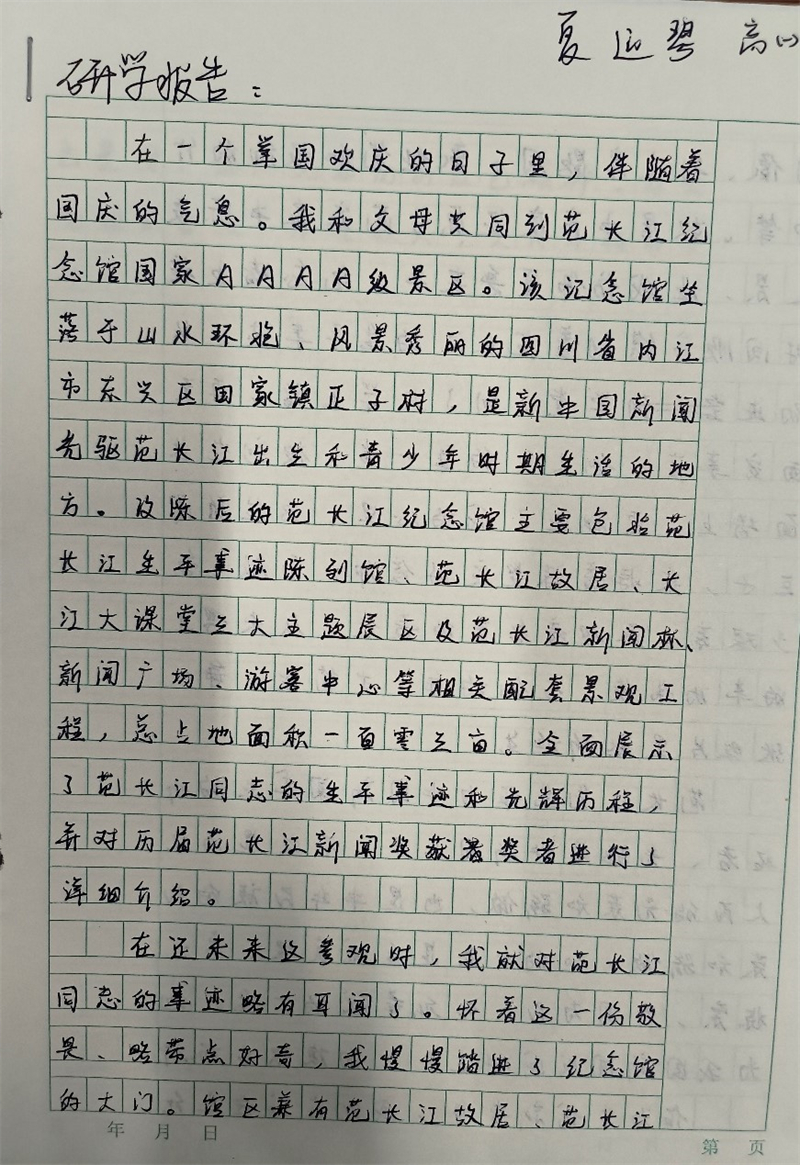 夏运琴 高
研学报告：
在一个举国欢庆的日子里，伴随着
国庆的气息。我和父母共同到范长江纪
念馆国家AAAA级景区。该记念馆坐
落于山水环抱、风景秀丽的四川省内江
市东兴区田家镇正子村，是新中国新闻
先驱范长江出生和青少年时期生活的地
方。改陈后的范长江纪念馆主要包括范
长江生平事迹陈列馆、范长江故居、长
江大课堂三大主题展区及范长江新闻林、
新闻广场、游客中心等相关配套景观工
程，总占地面积一百零三亩。全面展示
了范长江同志的生平事迹和光辉历程，
并对历届范长江新闻奖获奖者进行了
详细介绍。
在还未来这参观时，我就对范长江
同志的事迹略有耳闻了。怀着这一份敬
畏、略带点好奇，我慢慢踏进了纪念馆
的大门。馆区兼有范长江故居、范长江
年 月 日
第 页